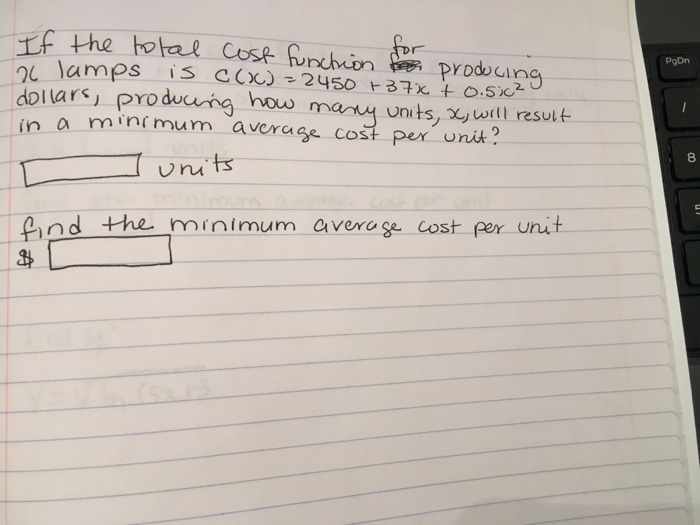 If the total cost function for producing
x lamps is C(x) = 2450 + 37x + 0.5x²
dollars, producing how many units, x, will result
in a minimum average cost per unit?
units
find the minimum average cost per unit
$
PgDn
/
8